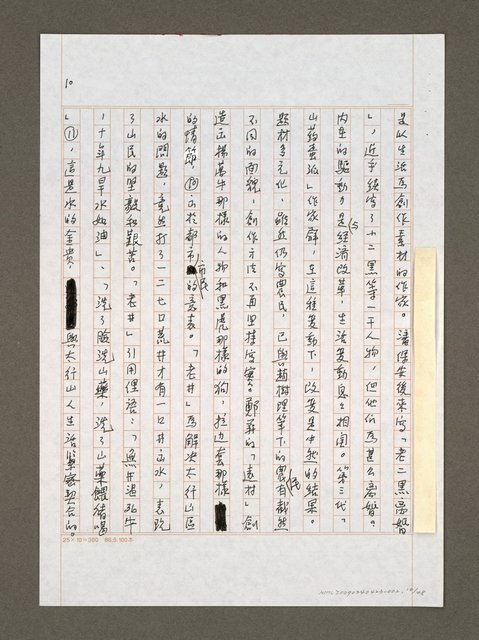 10
是以生活為創作素材的作家。潘保安後來寫「老二黑離婚
」，近乎續寫了小二黑等一干人物，但他們為甚么離婚。
內在的驅動力是經濟改革，生活變動息息相関。第三代「
山葯蛋派」作家群，在這種变動下，改变是中然的結果。
題材多元化，雖然仍寫農民，已與趙樹理筆下的農民有截然
不同的面貌，創作方法不再坚持寫實。鄭義的「遠村」創
造出楊萬牛那樣的人物和黑虎那樣的狗，拉边套那樣
的情節，⑩出於都市市民的意表。「老井」為解決太行山區
水的問題，竟然打了一二七口荒井才有一口井出水，表現
了山民的堅毅和艱苦。「老井」引用俚語：「魚井温死牛
，十年九旱水如油」、「洗了臉洗山藥，洗了山藥餵猪喝
」⑪，這是水的金贵，與太行山人生活緊密契合的。
25×12=300 86.5.100本